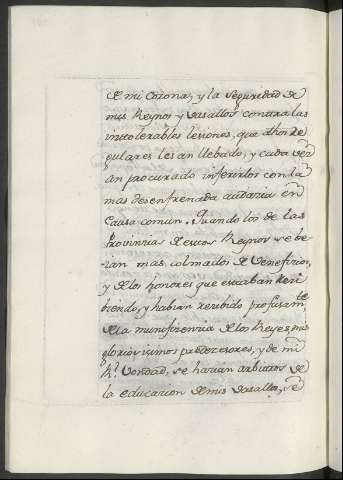 de mi Corona, y la seguridad de
mis Reynos y Vasallos contra las
intolerables lesiones, que dhos Re
gulares les an llebado, y cada
an procurado inferirlos con la
mas desenfrenada audacia en
Causa comun. Quando los de las
Provincias de estos Reynos se be-
-ian mas colmados de Veneficios,
y de los honores que estaban Reci
biendo, y habian recibido profusamte
de la munificencia de los Reyes, mis
gloriosisimos predecesores, y de mi
Rl. Vondad, se hacian arbitros de
la educacion de mis Vasallos, se